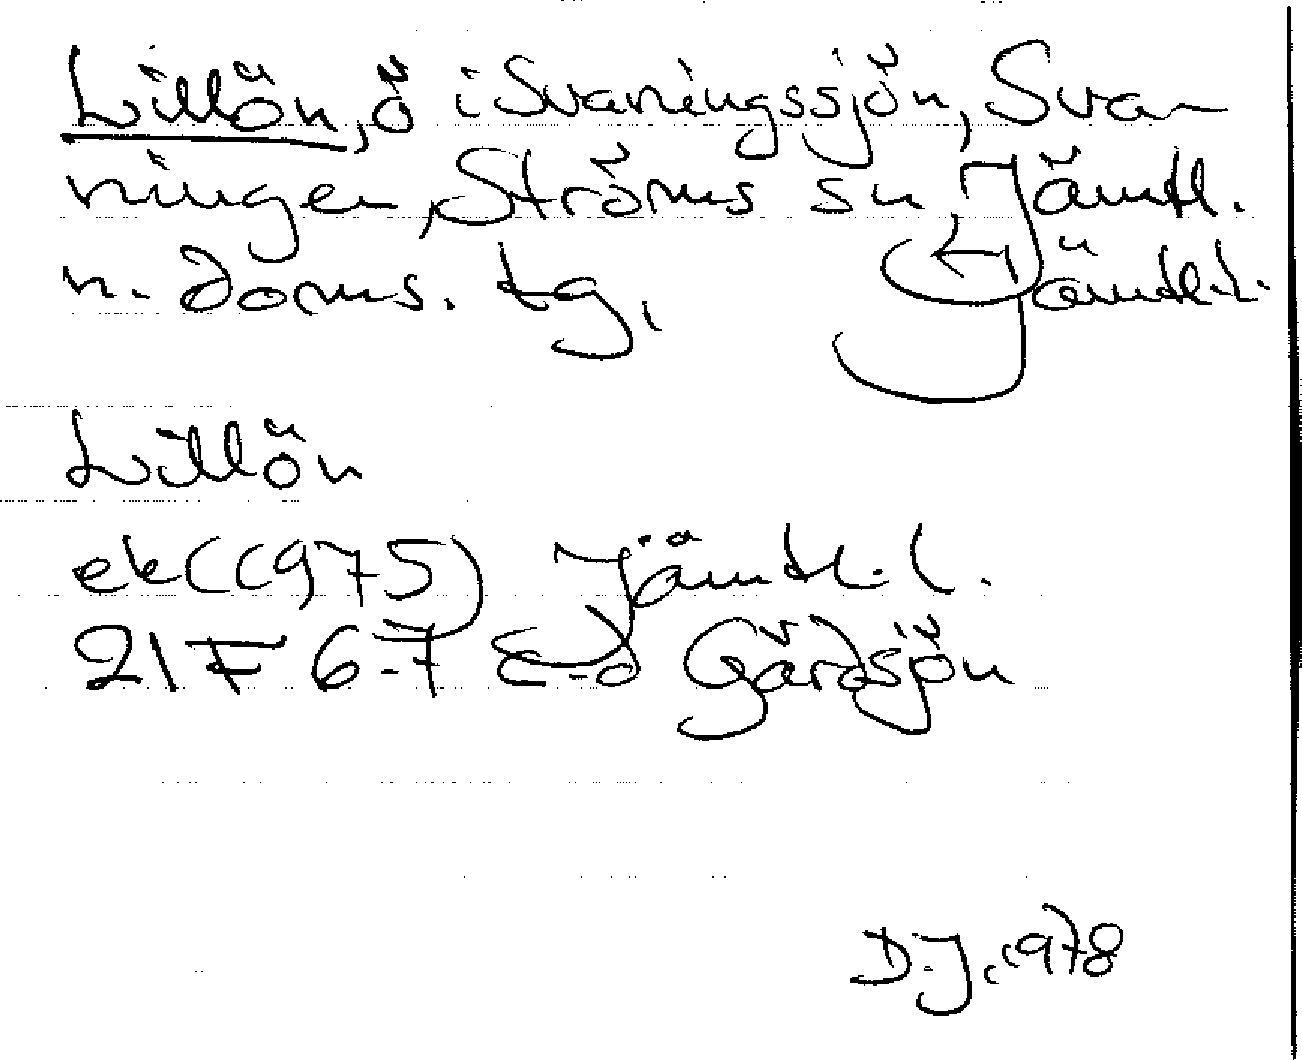 Lillön, ö i Svaningssjön, Sva-
ningen, Ströms sn, Jämtl.
n. doms. tg, Jämtl.l.
Lillön
ek (1975) Jämtl.l.
21 F 6-7 c-d Gårdsjön
D.J. 1978